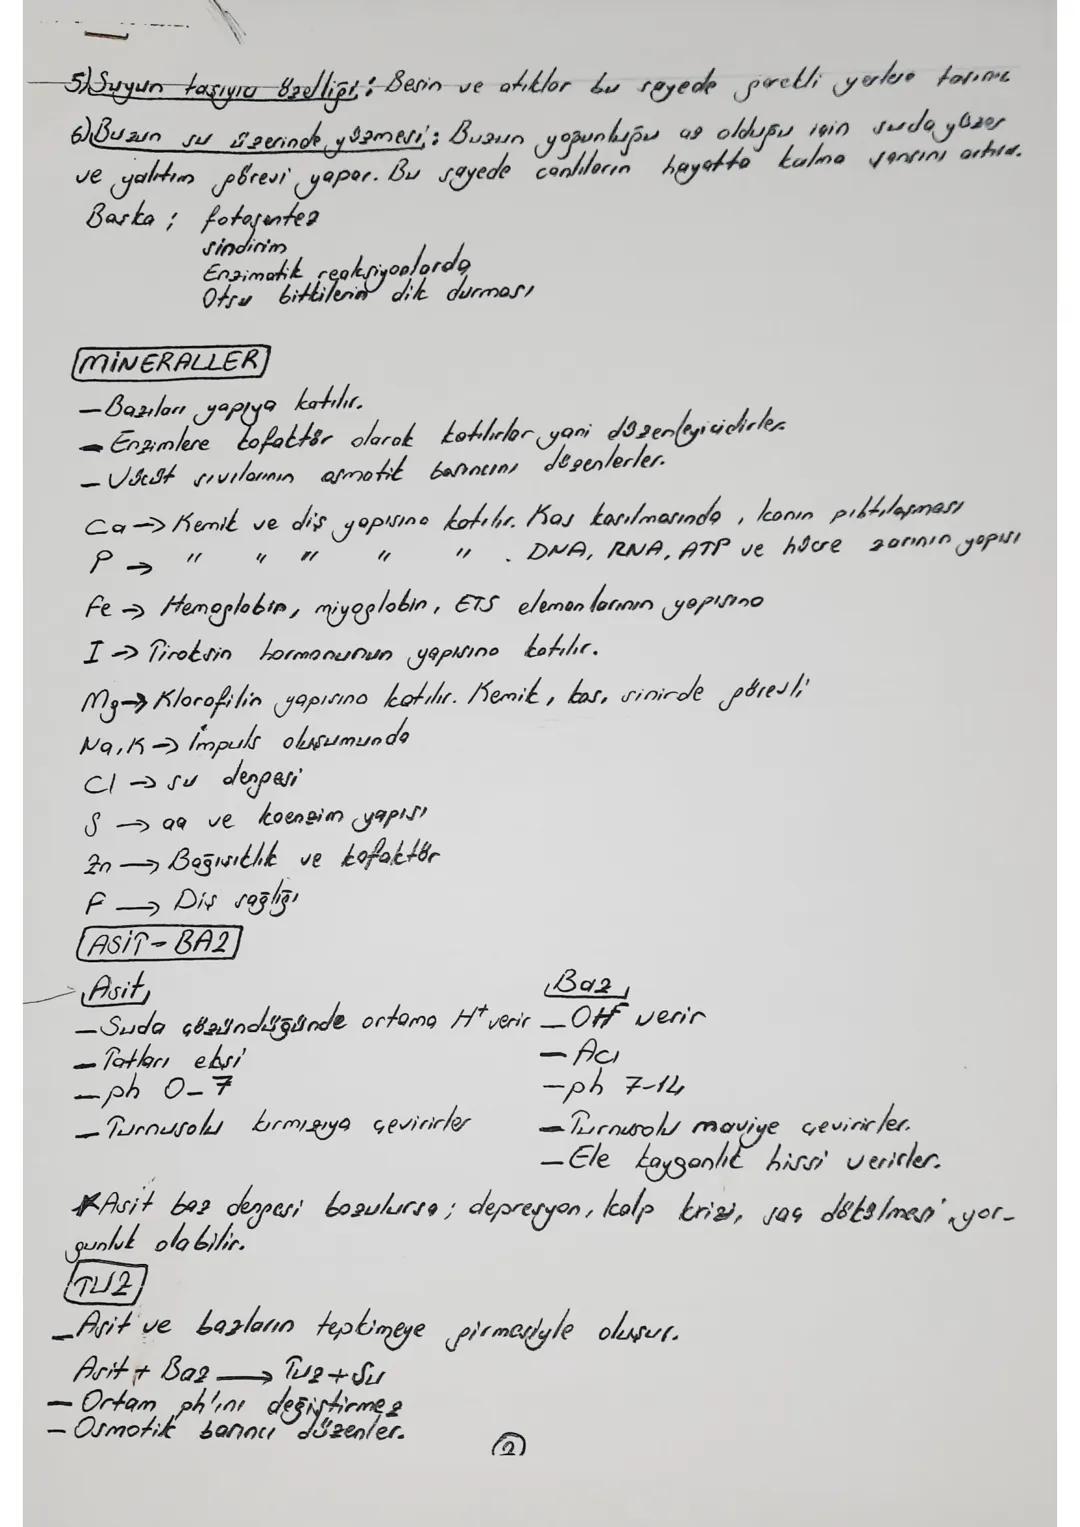 5) Suyun taşıyıcı özelliği: Besin ve atıklar bu sayede gerekli yerlere taşınır
6) Buzun su üzerinde yüzmesi: Buzun yoğunluğu az olduğu için suda yüzer
ve yalıtım görevi yapar. Bu sayede canlıların hayatta kalma şansını artırır.
Başka ; fotosentez
sindirim
Enzimatik reaksiyonlarda
Otsu bitkilerin dik durması
MİNERALLER
- Bazıları yapıya katılır.
- Enzimlere kofaktör olarak katılırlar yani düzenleyicidirler
- Vücüt sıvılarının osmotik basıncını düzenlerler.
Ca → Kemik ve diş yapısına katılır. Kas kasılmasında, kanın pıhtılaşması
P → " " " " " . DNA, RNA, ATP ve hücre zarının yapısı
Fe → Hemoglobin, miyoglobin, ETS elemanlarının yapısına
I → Tiroksin hormonunun yapısına katılır.
Mg → Klorofilin yapısına katılır. Kemik, kas, sinirde görevli
Na, K → İmpuls oluşumunda
Cl → su dengesi
S → aa ve koenzim yapısı
Zn → Bağışıklık ve kofaktör
F → Diş sağlığı
ASİT-BAZ
Asit Baz
- Suda çözündüğünde ortama H+ verir - OH- verir
- Tatları ekşi - Acı
- ph 0-7 - ph 7-14
- Turnusolu kırmızıya çevirirler - Turnusolu maviye çevirirler.
- Ele kayganlık hissi verirler.
* Asit baz dengesi bozulursa; depresyon, kalp krizi, saç dökülmesi, yor-
gunluk olabilir.
TUZ
- Asit ve bazların tepkimeye girmesiyle oluşur.
Asit + Baz → Tuz + Su
- Ortam ph'ını değiştirmez
- Osmotik basıncı düzenler.
2